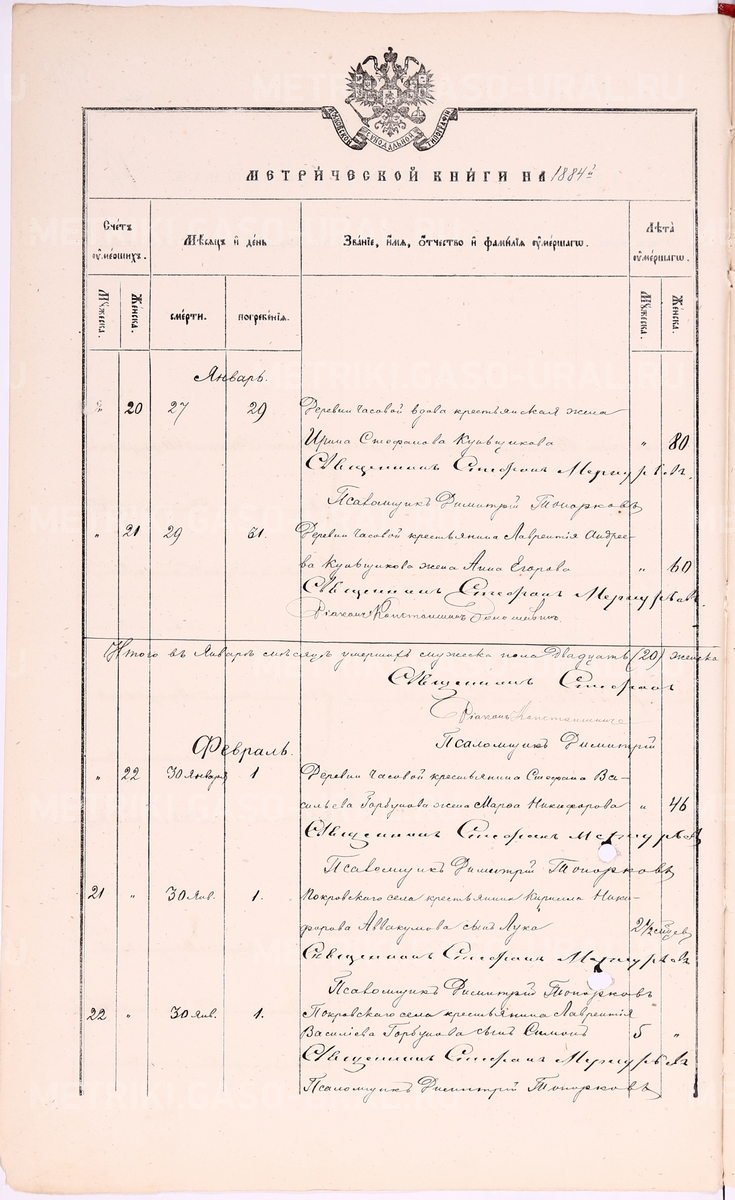 МОСКОВСКОЙ СѴНОДАЛЬНОЙ ТИПОГРАФІИ
МЕТРИ́ЧЕСКОЙ КНИ́ГИ НА 1884 г.
Сче́тъ ᲂу҆ме́ршихъ.
Мѣ́сѧцъ и҆ де́нь
Зва́нїе, и҆́мѧ, ѻ҆́тчество и҆ фами́лїѧ ᲂу҆ме́ршагѡ.
Лѣ́та ᲂу҆ме́ршагѡ.
Мꙋ́жеска.
Же́нска.
сме́рти.
погребе́нїѧ.
Мꙋ́жеска.
Же́нска.
Январь.
" 20 27 29 Деревни Часовой вдова крестьянская жена
Ирина Стефанова Кувшикова " 80
Священникъ Стефанъ Меркурьевъ.
Псаломщикъ Димитрій Топорковъ
" 21 29 31. Деревни Часовой крестьянина Лаврентія Андрее-
ва Кувшикова жена Анна Егорова " 60
Священникъ Стефанъ Меркурьевъ.
Діаконъ Константинъ
Итого въ Январѣ мѣсяцѣ умершихъ мужеска пола двадцать (20) женска
Священникъ Стефанъ
Діаконъ Константинъ
Псаломщикъ Димитрій
Февраль.
" 22 30 Января 1 Деревни Часовой крестьянина Стефана Ва-
сильева Горбунова жена Марѳа Никифорова " 46
Священникъ Стефанъ Меркурьевъ
Псаломщикъ Димитрій Топорковъ
21 " 30 Янв. 1. Покровскаго села крестьянина Кирилла Ники-
форова Аввакумова сынъ Лука 2 1/2 мѣсяцев
Священникъ Стефанъ Меркурьевъ
Псаломщикъ Димитрій Топорковъ
22 " 30 Янв. 1. Покровскаго села крестьянина Лаврентія
Василіева Горбунова сынъ Симонъ 5 "
Священникъ Стефанъ Меркурьевъ
Псаломщикъ Димитрій Топорковъ